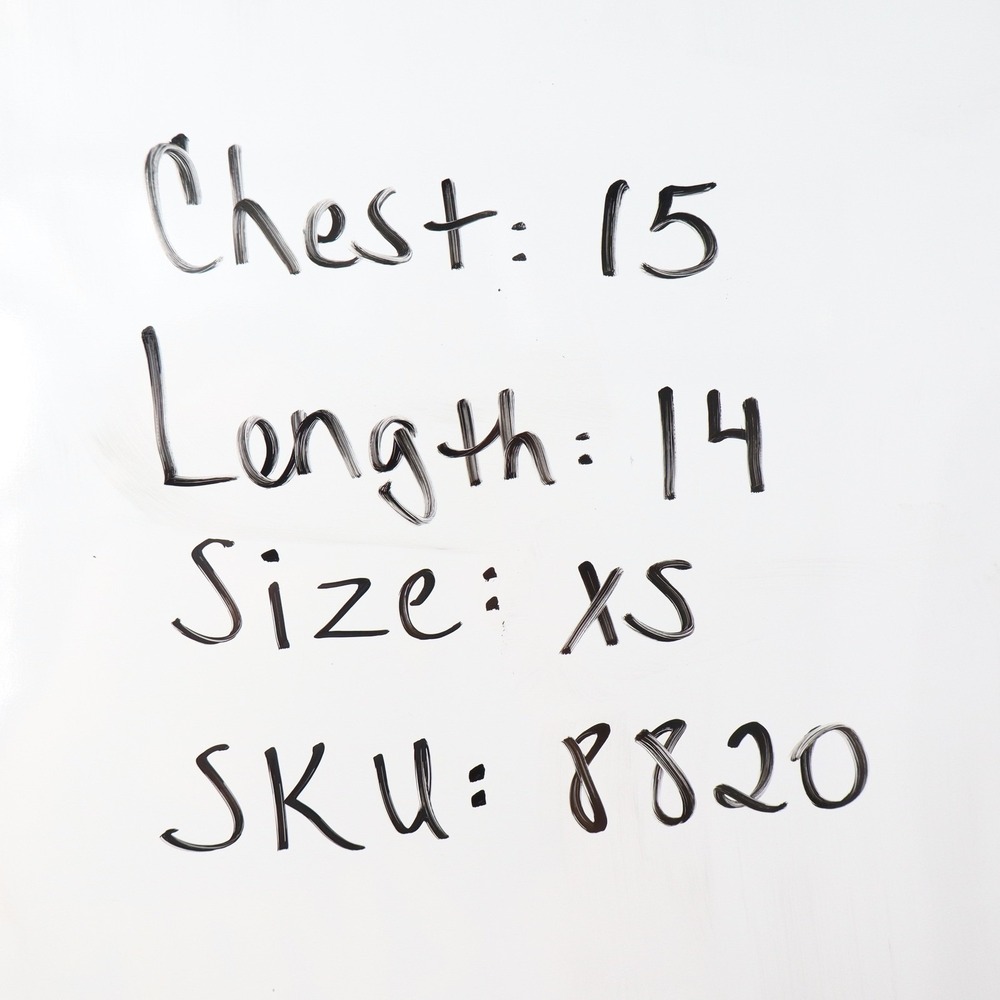 Chest: 15
Length: 14
Size: XS
SKU: 8820